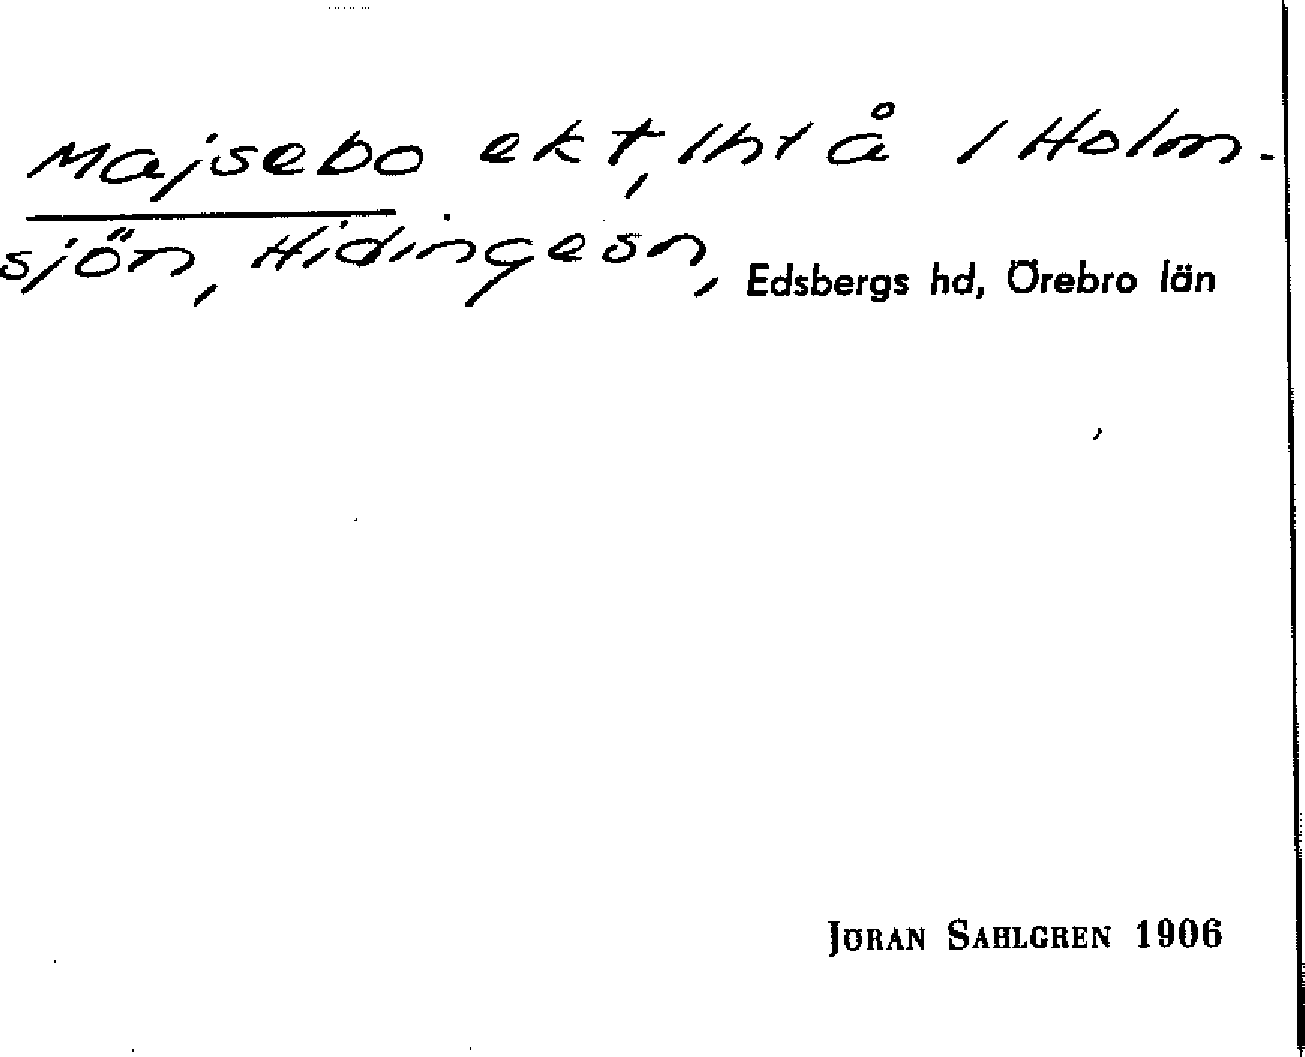 Majsebo ekt, lht å 1 Holm-
sjön, Hidinge sn, Edsbergs hd, Örebro län
JÖRAN SAHLGREN 1906